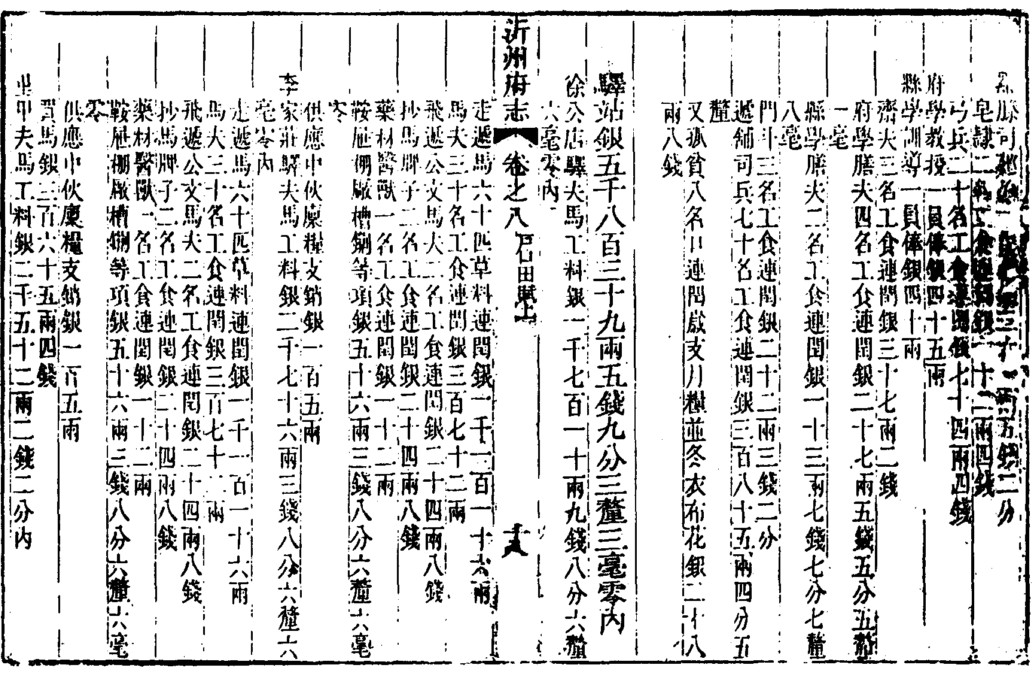 皂隸二名工食連閏銀一十二兩四錢
弓兵二十名工食連閏銀七十四兩四錢
府學教授一員俸銀四十五兩
縣學訓導一員俸銀四十兩
齋夫三名工食連閏銀三十七兩二錢
府學膳夫四名工食連閏銀二十七兩五錢五分五釐
一毫
縣學膳夫二名工食連閏銀一十三兩七錢七分七釐
八毫
門斗三名工食連閏銀二十二兩三錢二分
遞舖司兵七十名工食連閏銀三百八十五兩四分五
釐
又孤貧八名口連閏歲支月糧並冬衣布花銀二十八
兩八錢
驛站銀五千八百三十九兩五錢九分三釐三毫零內
徐公店驛夫馬工料銀一千七百一十兩九錢八分六釐
六毫零內
走遞馬六十匹草料連閏銀一千一百一十六兩
馬夫三十名工食連閏銀三百七十二兩
飛遞公文馬夫二名工食連閏銀二十四兩八錢
抄馬牌子二名工食連閏銀二十四兩八錢
藥材醫獸一名工食連閏銀一十二兩
鞍屜棚廠槽鍘等項銀五十六兩三錢八分六釐六毫
零
供應中伙廩糧支銷銀一百五兩
李家莊驛夫馬工料銀二千七十六兩三錢八分六釐六
毫零內
走遞馬六十匹草料連閏銀一千一百一十六兩
馬夫三十名工食連閏銀三百七十二兩
飛遞公文馬夫二名工食連閏銀二十四兩八錢
抄馬牌子二名工食連閏銀二十四兩八錢
藥材醫獸一名工食連閏銀一十二兩
鞍屜棚廠槽鍘等項銀五十六兩三錢八分六釐六毫
零
供應中伙廩糧支銷銀一百五兩
買馬銀三百六十五兩四錢
里甲夫馬工料銀二千五十二兩二錢二分內
沂州府志 卷之八 戶口田賦上 十八